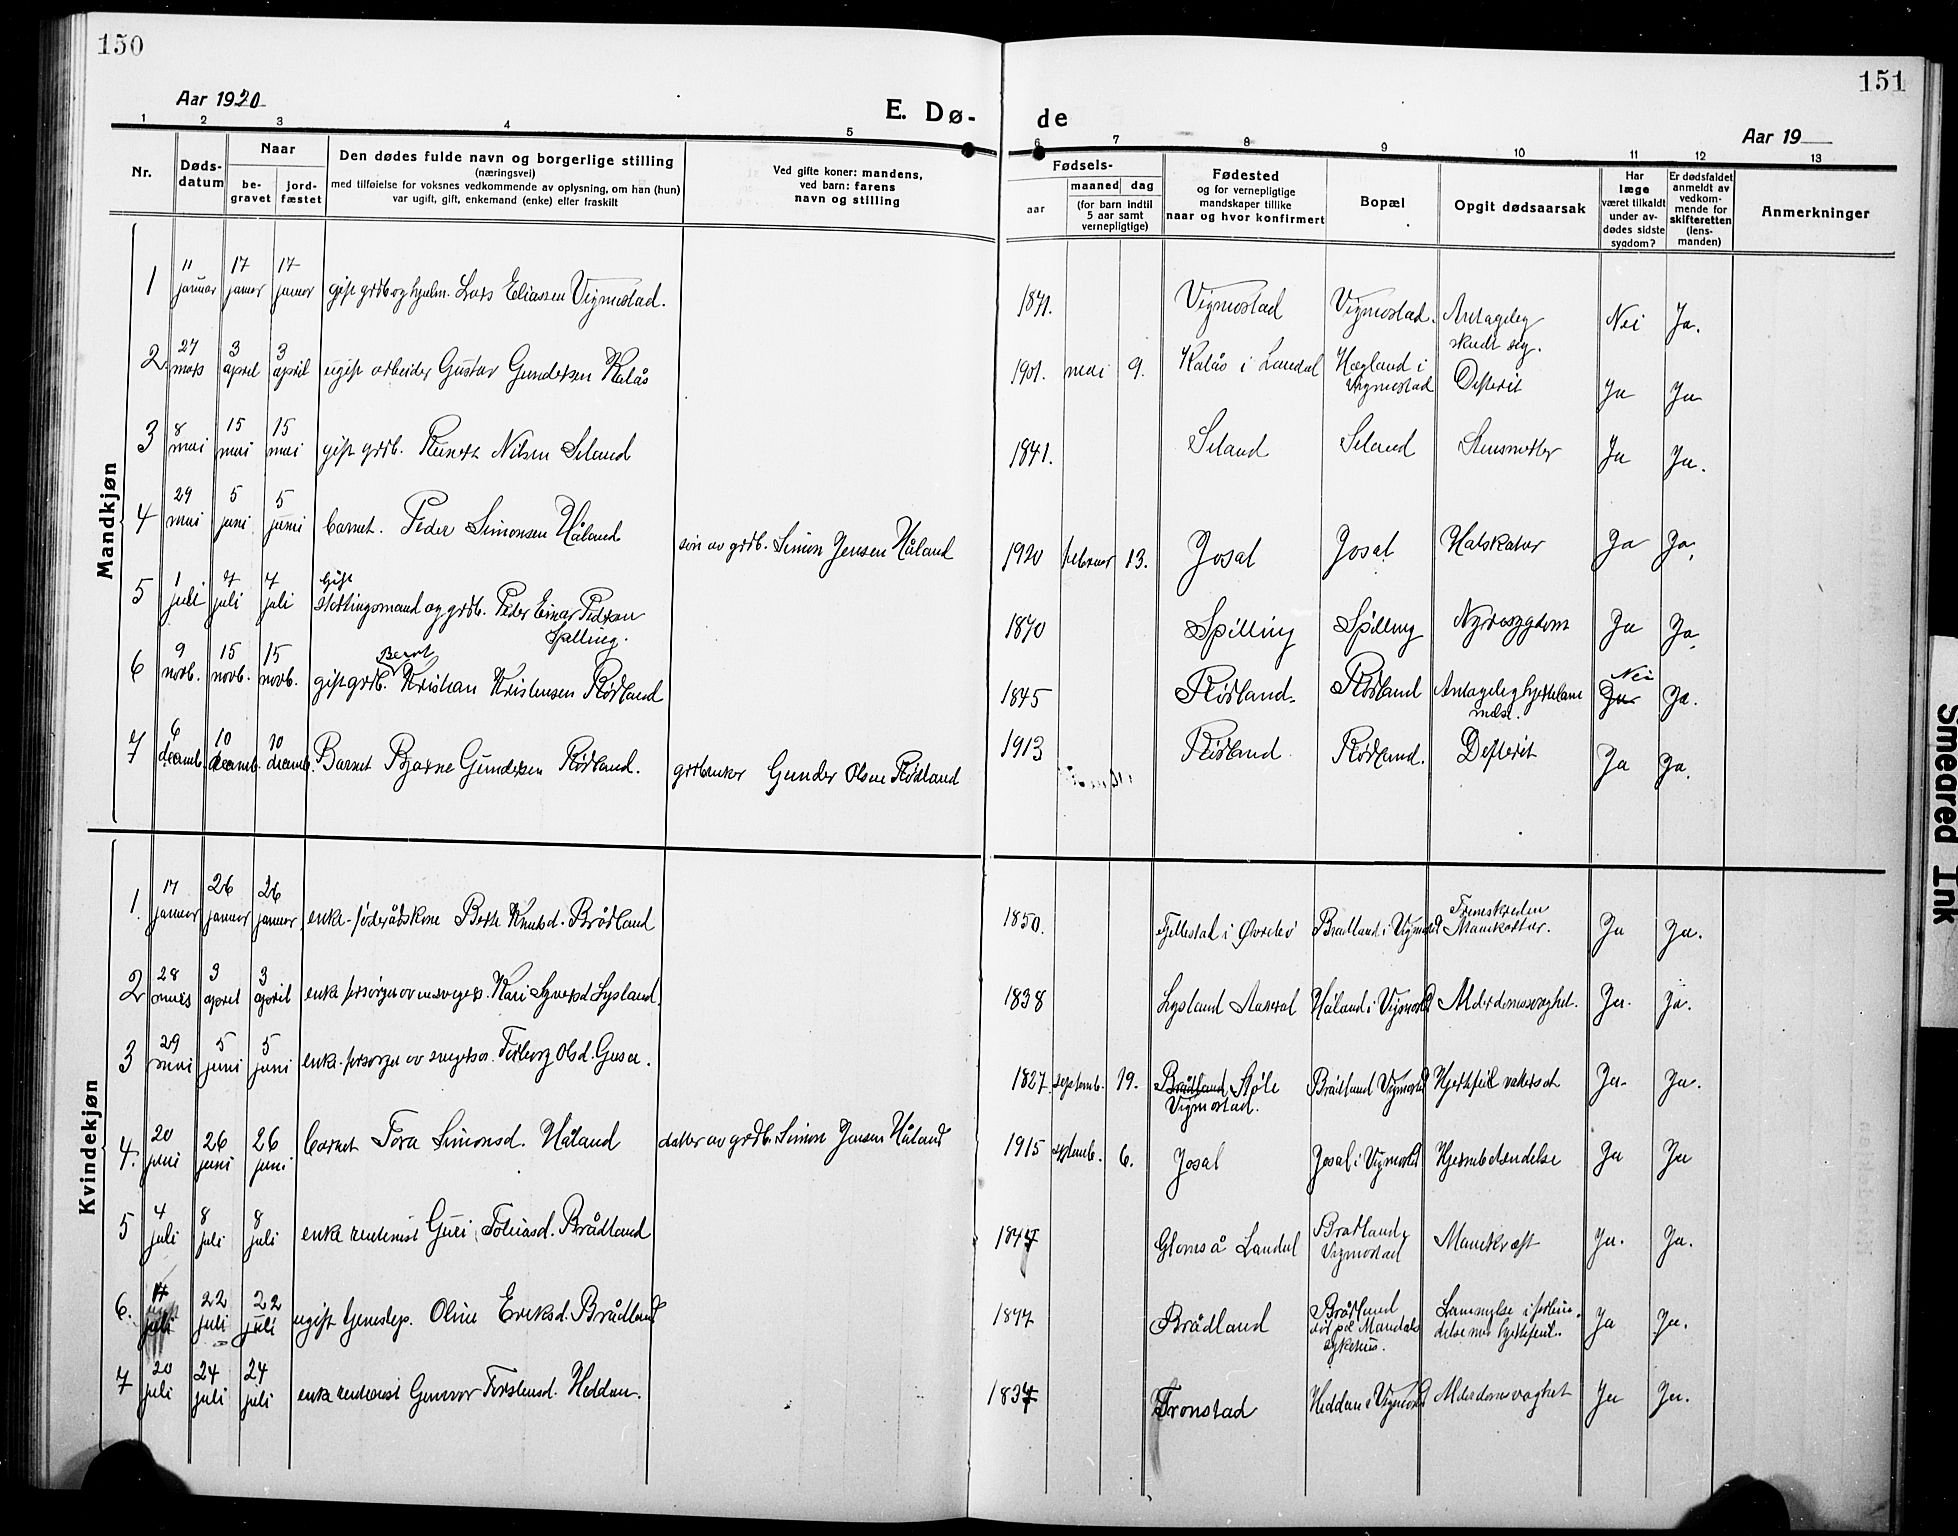 150
151
Aar 1920
E. Dø-
de
Aar 19
1 2 3 4 5 6 7 8 9 10 11 12 13
Nr.
Døds-
datum
Naar
be-
gravet
jord-
fæstet
Den dødes fulde navn og borgerlige stilling
(næringsvei)
med tilføielse for voksnes vedkommende av oplysning, om han (hun)
var ugift, gift, enkemand (enke) eller fraskilt
Ved gifte koner: mandens,
ved barn: farens
navn og stilling
Fødsels-
aar
maaned
dag
(for barn indtil
5 aar samt
vernepligtige)
Fødested
og for vernepligtige
mandskaper tillike
naar og hvor konfirmert
Bopæl
Opgit dødsaarsak
Har
læge
været tilkaldt
under av-
dødes sidste
sygdom?
Er dødsfaldet
anmeldt av
vedkom-
mende for
skifteretten
(lens-
manden)
Anmerkninger
Mandkjøn
1 11 januar 17 januar 17 januar gift grdb og hjulm. Lars Eliassen Vigmostad. 1871. Vigmostad Vigmostad. Antagelig skudt sig. Nei Ja.
2. 27 mars 3 april 3 april ugift arbeider Gustav Gundersen Kalås 1901. mai 9. Kalås i Laudal Hægland i Vigmostad Difterit Ja Ja
3 8 mai 15 mai 15 mai gift grdb. Reinert Nilsen Seland 1841. Seland Seland Ja Ja.
4 29 mai 5 juni 5 juni barnet. Peder Simonsen Håland søn av grdb. Simon Jensen Håland 1920 februar 13. Josal Josal Halskatar Ja Ja.
5 1 juli 7 juli 7 juli Gift stortingsmand og grdb. Peder Einar Pedersen Spilling. 1870 Spilling Spilling Nyresygdom Ja Ja.
6 9 novb. 15 novb. 15 novb. gift grdb. Berent Kristian Kristensen Rødland 1845 Rødland. Rødland Antagelig hjertelammelse. Ja Nei Ja.
7 6 decemb. 10 decemb. 10 decemb. Barnet Bjarne Gundersen Rødland. grdbruker Gunder Olsen Rødland 1913 Rødland Rødland. Difterit Ja Ja.
Kvindekjøn
1. 17 januar 26 januar 26 januar enke-føderådskone Berte Knutsd. Brådland 1850. Fjellestal i Øvrebø Brådland i Vigmostad Ja Ja.
2 28 mars 3 april 3 april enke forsørget av Kari Syversd Lysland. 1838 Lysland Aaseral Håland i Vigmostad Alderdomssvaghet. Ja. Ja.
3 29 mai 5 juni 5 juni enke. forsørget av Torborg Olsd. 1827 septemb. 19. Brådland Støle Vigmostad. Brådland Vigmostad Hjertefeil vattersot Ja. Ja.
4. 20 juni 26 juni 26 juni barnet Tora Simonsd. Håland datter av grdb. Simon Jensen Håland 1915 septemb. 6. Josal Josal i Vigmostad Hjernebetændelse Ja Ja
5 4 juli 8 juli 8 juli enke rentenist Guri Tobiasd. Brådland Glomså Laudal Brådland Vigmostad Mavekræft Ja. Ja.
6. 14 juli 22 juli 22 juli ugift tjenestep. Oline Eriksd. Brådland 1877 Brådland Brådland død på Mandals sykehus. Lammelse i forbindelse med hjertefeil. Ja Ja.
7 20 juli 24 juli 24 juli enke rentenist Gunvor Torstensd. Heddan. 1837 Tronstad Heddan i Vigmostad Alderdomsvaghet Ja Ja.
Smeared Ink